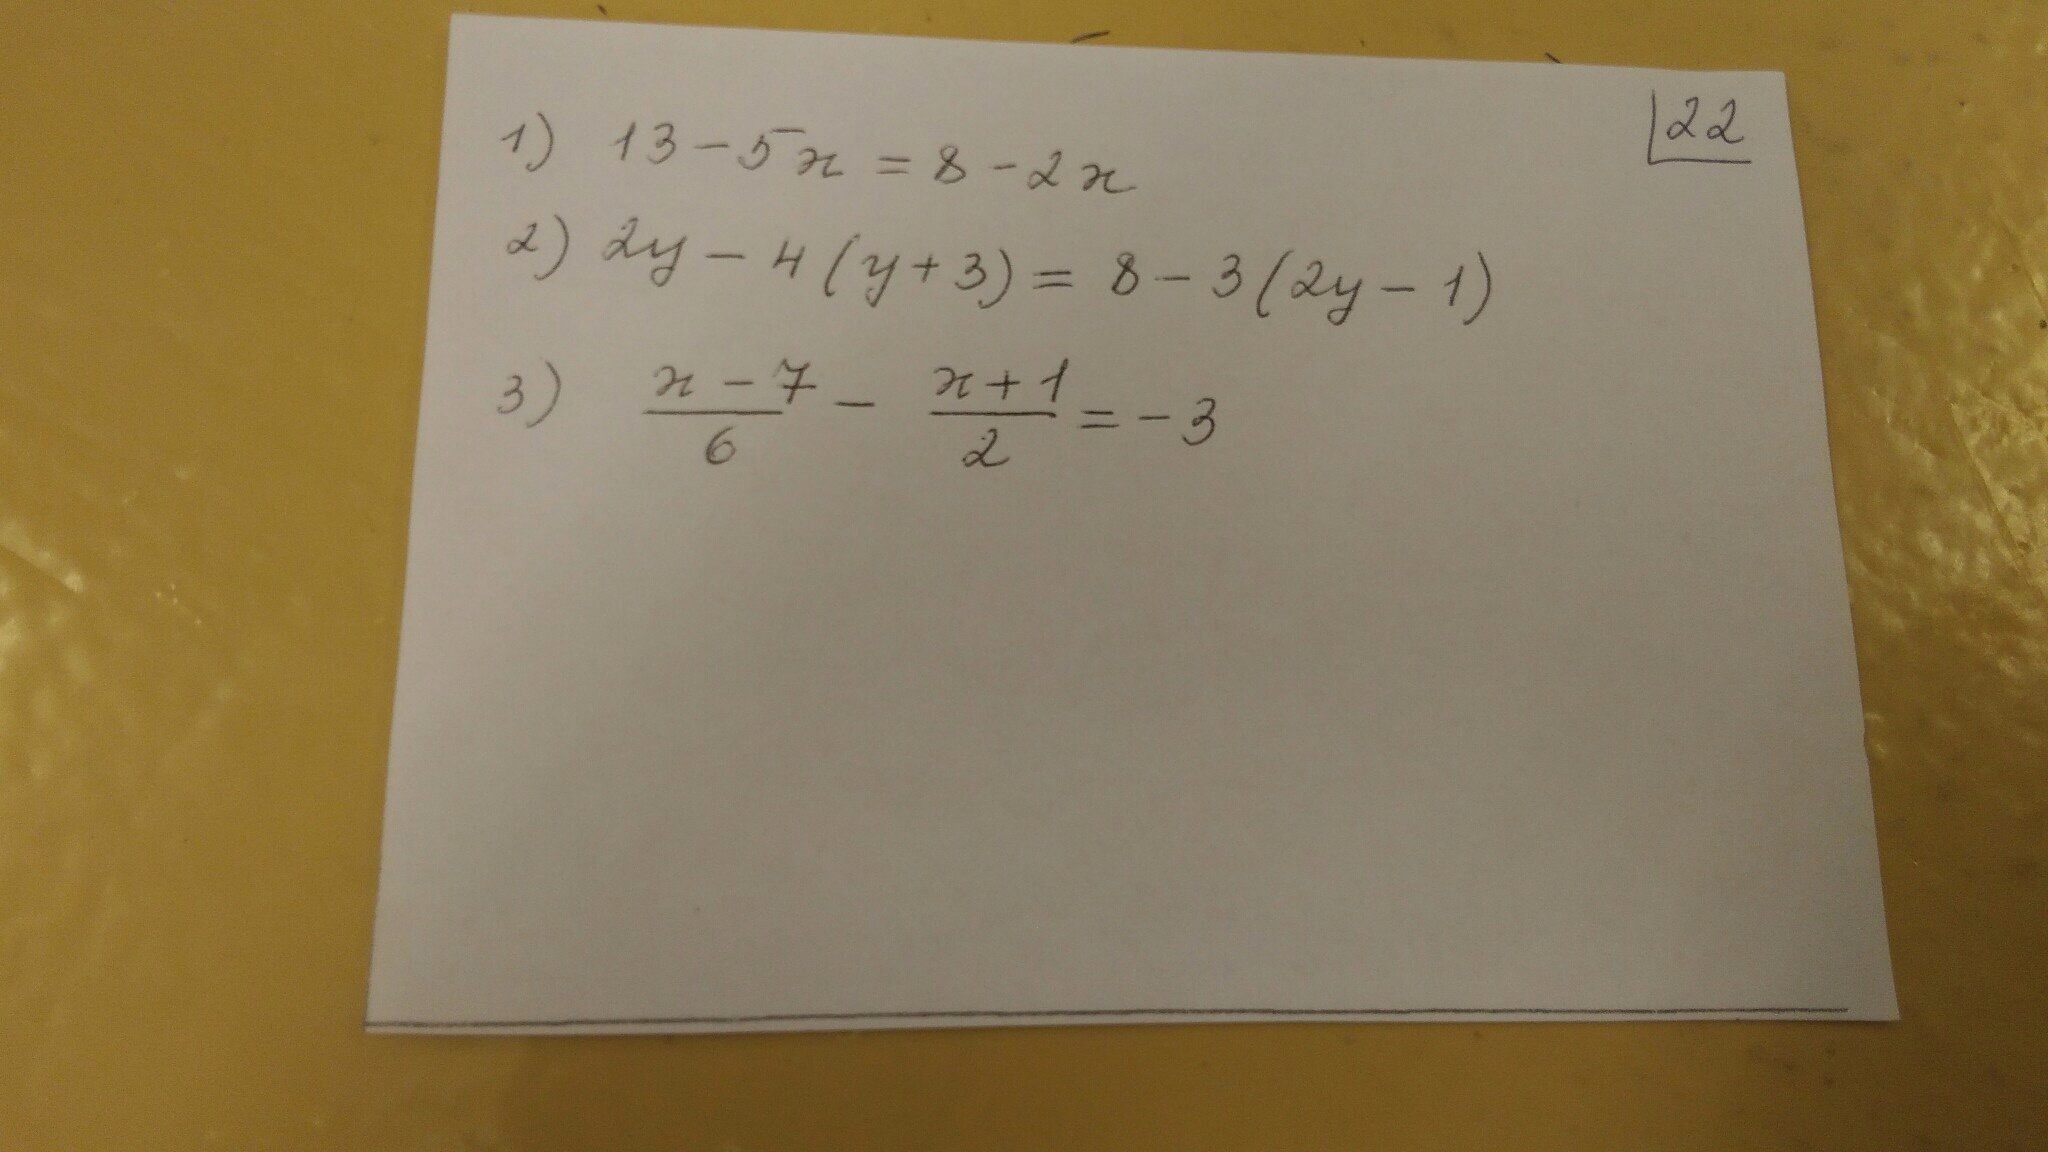 22
1) 13 - 5x = 8 - 2x
2) 2y - 4(y + 3) = 8 - 3(2y - 1)
3) (x - 7)/6 - (x + 1)/2 = -3